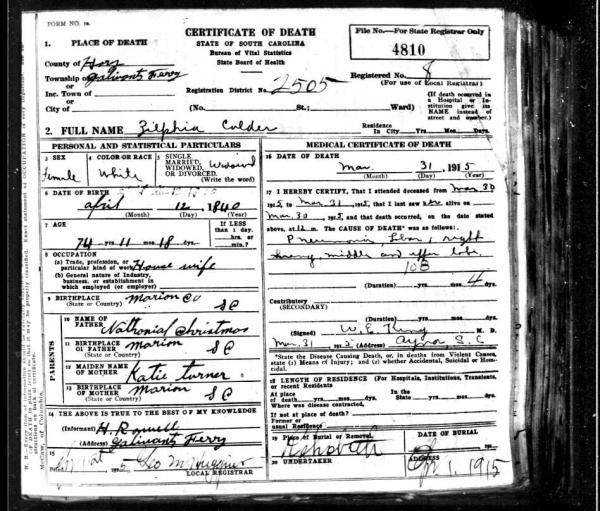 FORM NO.
CERTIFICATE OF DEATH
STATE OF SOUTH CAROLINA
Bureau of Vital Statistics
State Board of Health
File No.—For State Registrar Only
4810
1. PLACE OF DEATH
County of Horry
Township of Galivants Ferry
or
Inc. Town of
or
City of
Registration District No. 2505
Registered No. 8
(For use of Local Registrar)
(No. St.; Ward)
(If death occurred in
a Hospital or In-
stitution give its
NAME instead of
street and number.)
2. FULL NAME Zilphia Calder
Residence
In City Yrs. Mos. Days.
PERSONAL AND STATISTICAL PARTICULARS
3 SEX
female
4 COLOR OR RACE
White
5 SINGLE,
MARRIED,
WIDOWED,
OR DIVORCED.
(Write the word)
Widowed
6 DATE OF BIRTH
April 12, 1840
(Month) (Day) (Year)
7 AGE
74 yrs. 11 mos. 18 ds.
If LESS
than 1 day,
hrs. or
min.?
8 OCCUPATION
(a) Trade, profession, or
particular kind of work House wife
(b) General nature of Industry,
business, or establishment in
which employed (or employer)
9 BIRTHPLACE Marion Co
(State or Country) S C
PARENTS
10 NAME OF
FATHER Nathonial Christmas
11 BIRTHPLACE
OF FATHER Marion
(State or Country) S C
12 MAIDEN NAME
OF MOTHER Katie Turner
13 BIRTHPLACE
OF MOTHER Marion
(State or Country) S C
14 THE ABOVE IS TRUE TO THE BEST OF MY KNOWLEDGE
(Informant) H. Rowell
(Address) Galivants Ferry
15
191 5 Geo M Huggins
LOCAL REGISTRAR
MEDICAL CERTIFICATE OF DEATH
16 DATE OF DEATH
Mar. 31, 1915
(Month) (Day) (Year)
17 I HEREBY CERTIFY, That I attended deceased from Mar 30
1915, to Mar. 31, 1915, that I last saw her alive on
Mar 30, 1915, and that death occurred, on the date stated
above, at 12 m. The CAUSE OF DEATH* was as follows:
Pneumonia Lobar; right
middle and upper lobe
108
(Duration) yrs. mos. 4 dys.
Contributory
(SECONDARY)
(Duration) yrs. mos. dys.
(Signed) W. E. King M. D.
Mar. 31, 1915 (Address) Aynor S. C
*State the Disease Causing Death, or, in deaths from Violent Causes,
state (1) Means of Injury; and (2) whether Accidental, Suicidal or Homi-
cidal.
18 LENGTH OF RESIDENCE (For Hospitals, Institutions, Transients,
or recent Residents
At place
of death yrs. mos. ds.
In the
State yrs. mos. ds.
Where was disease contracted,
If not at place of death?
Former or
usual Residence
19 Place of Burial or Removal,
Rehobeth
DATE OF BURIAL
Ap. 1, 1915
20 UNDERTAKER
ADDRESS